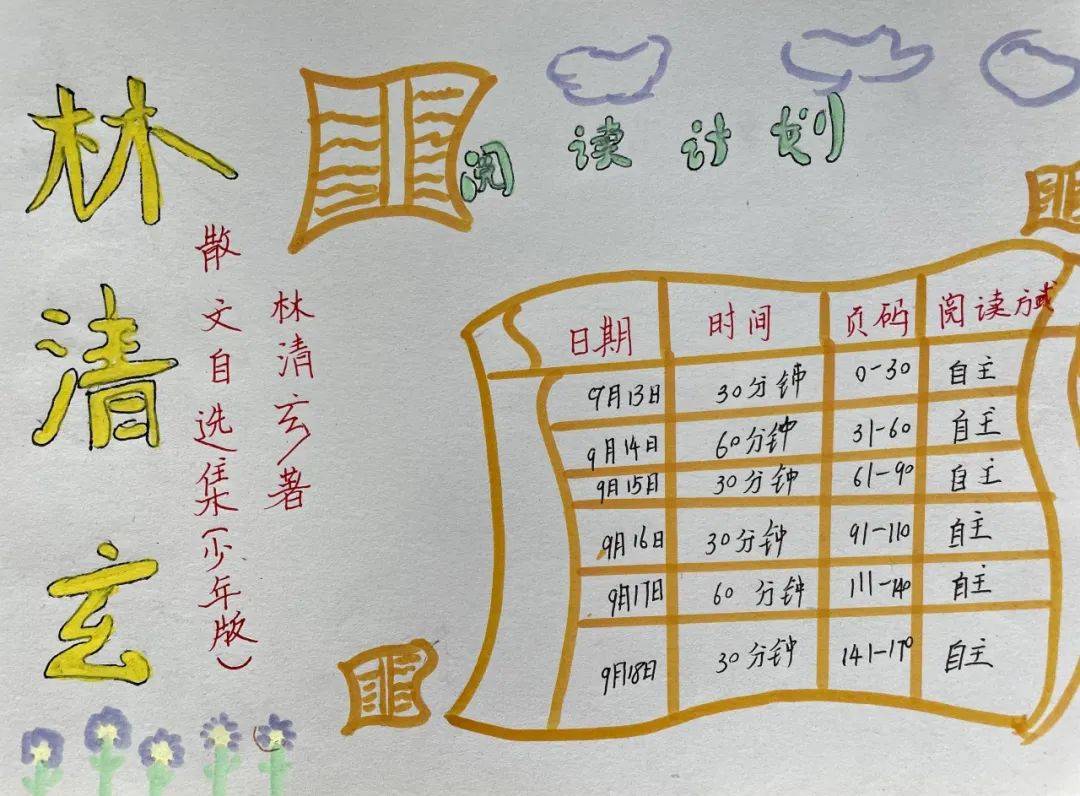 林清玄
散文自选集(少年版)
林清玄著
阅读计划
日期 时间 页码 阅读方式
9月13日 30分钟 0-30 自主
9月14日 60分钟 31-60 自主
9月15日 30分钟 61-90 自主
9月16日 30分钟 91-110 自主
9月17日 60分钟 111-140 自主
9月18日 30分钟 141-170 自主